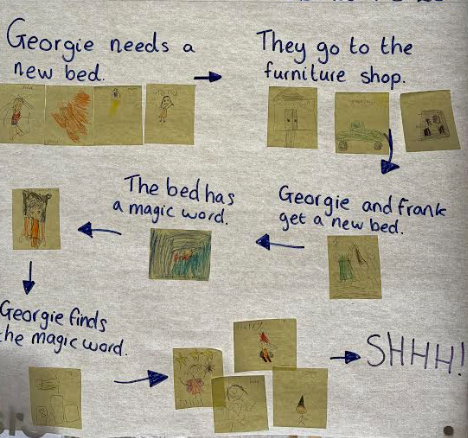 Georgie needs a
new bed.
They go to the
furniture shop.
Georgie and Frank
get a new bed.
The bed has
a magic word.
Georgie finds
the magic word.
SHHH!